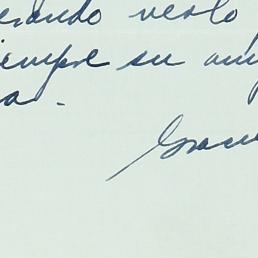 erando verlo
iempre su ami
a.
Graci